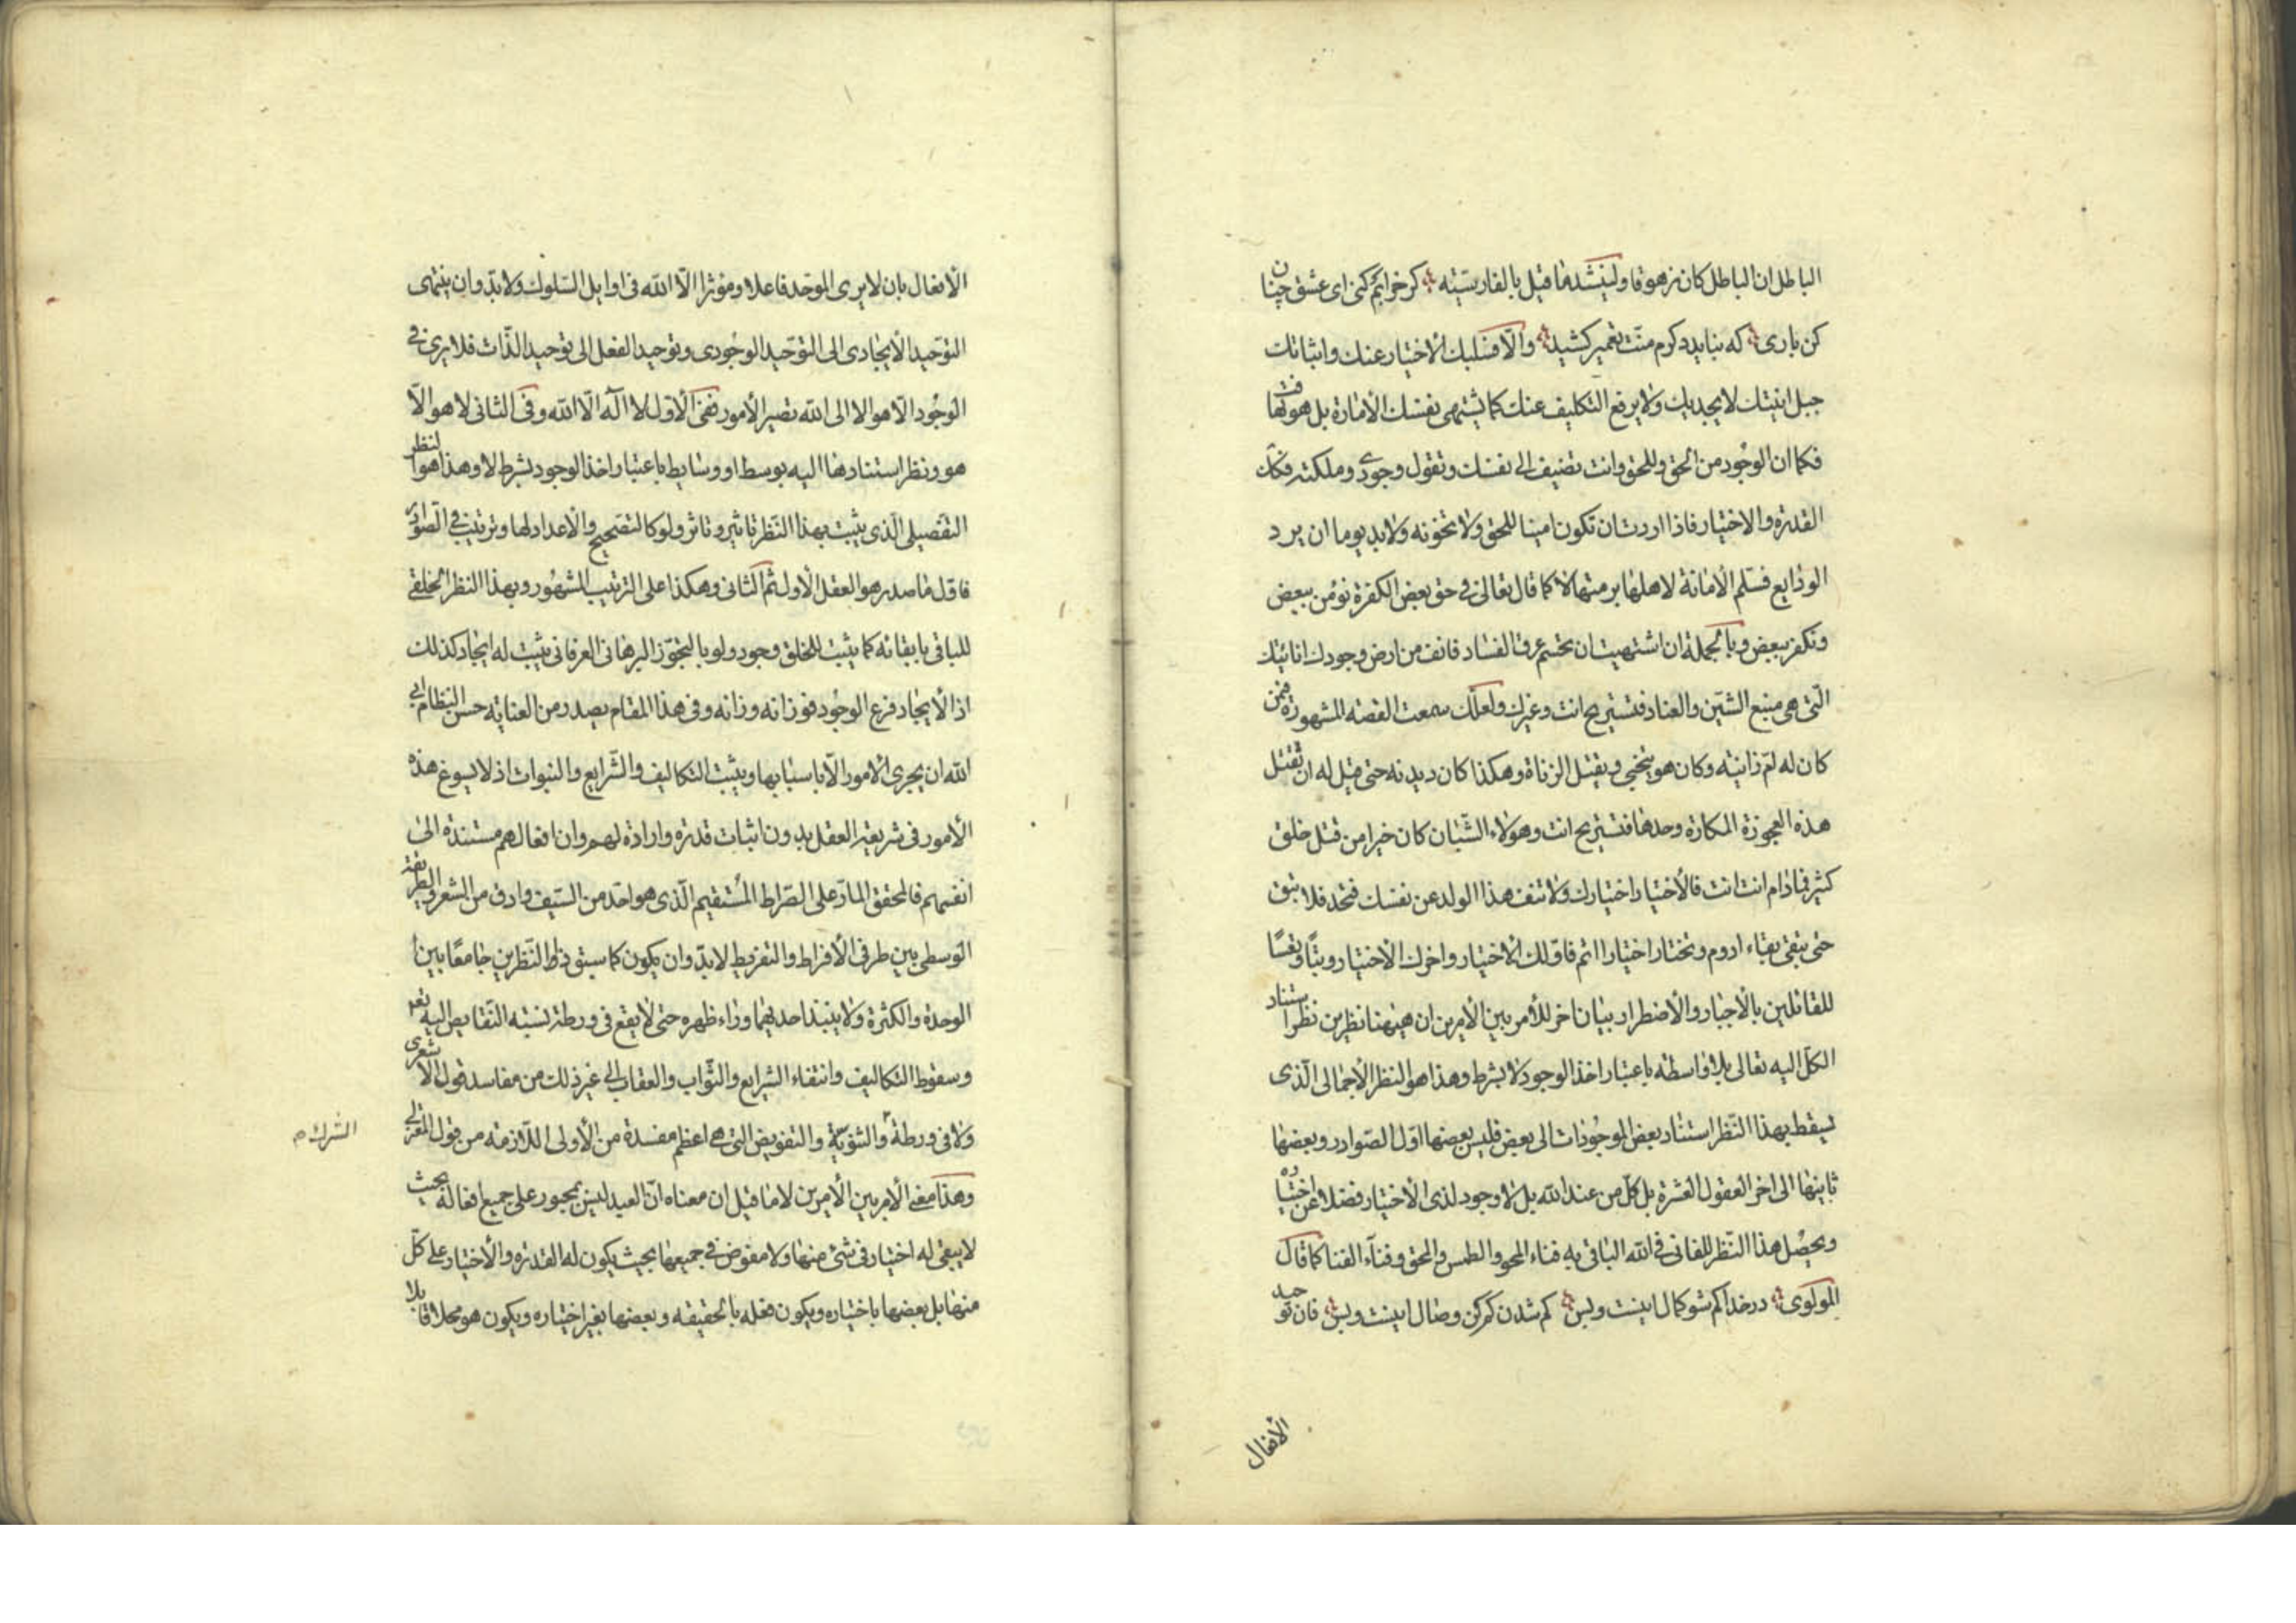 الباطل ان الباطل كان زهوقا ولينشد ما قيل بالفارسيّة كر خرابم كنى اى عشق چنان
كن بارى كه نبايد دكرم منّت تعمير كشيد والّا فسلبك الاختيار عنك واثباتك
جبل انيتك لا يجديك ولا يرفع التكليف عنك كما يشتهى نفسك الامارة بل هو لها
فكما ان الوجُود من الحق وللحق وانت تضيف الى نفسك وتقول وجودى وملكته فكك
القدرة والاختيار فاذا اردت ان تكون امينا للحق ولا تخونه ولابد يوما ان يرد
الودايع فسلم الامانة لاهلها برمتها لا كما قال تعالى فى حق بعض الكفرة نؤمن ببعض
ونكفر ببعض وبالجملة ان اشتهيت ان تحسم عرق الفساد فانف من ارض وجودك انانيتك
الّتى هى منبع الشين والعناد فتستريح انت وغيرك ولعلّك سمعت القصه المشهورة فمن
كان له امّ زانيه وكان هو ينحى ويقتل الزناة وهكذا كان ديدنه حتى قيل له ان تقتل
هذه العجوزة المكارة وحدها فتستريح انت وهولاء الشّبان كان خيرا من قتل خلق
كثير فمادام انت انت فالاختيار اختيارك ولا تنف هذا الولد عن نفسك فتحد فلا تبق
حتى تبقى بقاء ادوم وتختار اختيارا اتم فاوّلك الاختيار واخرك الاختيار وتبّا وتعسًا
للقائلين بالاجبار والاضطرار بيان اخر للامر بين الامرين ان هيهنا نظرين نظر استناد
الكلّ اليه تعالى بلا واسطه باعتبار اخذ الوجود لا بشرط وهذا هو النظر الاجمالى الّذى
يسقط بهذا النّظر استناد بعض الموجُودات الى بعض فليس بعضها اوّل الصّوادر وبعضها
ثانيها الى اخر العقول العشرة بل كلّ من عند الله بل لا وجود لذى الاختيار فضلا عن اختياره
ويحصُل هذا النّظر للفانى فى الله الباقى به فناء المحو والطمس والمحق وفناء الفنا كما قال
المولوى در خدا كم شو كمال اينست وبس كم شدن كم كن وصال اينست وبس فان توحيد
الأفعال
الأفعال بان لا يرى الموحّد فاعلا ومؤثرا الّا الله فى اوايل السّلوك ولابدّ وان ينتهى
التوحيد الأيجادى الى التوحّيد الوجُودى وتوحيد الفعل الى توحيد الذّات فلا يرى فى
الوجُود الّا هو الا الى الله تصير الأمور ففى الاوّل لا اله الّا الله وفى الثانى لا هو الّا
هو ونظر استنادها اليه بوسط او وسايط باعتبار اخذ الوجود بشرط لا وهذا هو النظر
التفصيلى الّذى يثبت بهذا النّظر تاثير وتاثر ولو كالتصحيح والاعداد لها وترتيب فى الصّوادر
فاوّل ما صدر هو العقل الاول ثم الثانى وهكذا على الترتيب المشهُور وبهذا النظر الخلقى
للباقى بابقائه كما يثبت للخلق وجود ولو بالتجوّز البرهانى العرفانى يثبت له ايجاد كذلك
اذ الأيجاد فرع الوجُود فوزانه وزانه وفى هذا المقام يصدر من العناية حسن النظام ابى
الله ان يجرى الامور الّا باسبابها ويثبت التكاليف والشّرايع والنبوات اذ لا يسوغ هذه
الأمور فى شريعة العقل بدون اثبات قدرة وارادة لهم وان افعالهم مستندة الى
انفسهم فالمحقق المارّ على الصّراط المُستقيم الّذى هو احد من السّيف وادق من الشعر والطريقة
الوسطى بين طرفى الأفراط والتفريط لابدّ وان يكون كما سبق ذا النّظرين جامعًا بين
الوحدة والكثرة ولا ينبذ احديهما وراء ظهره حتى لا يقع فى ورطة نسبة النّقايص اليه تعه
وسقوط التكاليف وانتفاء الشرايع والثّواب والعقاب الى غير ذلك من مفاسد قول الاشعرى
ولا فى ورطة والثنويّة والتفويض التى هى اعظم مفسدة من الأولى اللّازمة من قول المعتزلى
الشرك م
وهذا معنى الأمر بين الأمرين لا ما قيل ان معناه انّ العبد ليس بمجبور على جميع افعاله بحيث
لا يبقى له اختيار فى شئ منها ولا مفوض فى جميعها بحيث يكون له القدرة والأختيار على كلّ
منها بل بعضها باختياره ويكون فعله بالحقيقه وبعضها بغير اختياره ويكون هو محلا قابلا